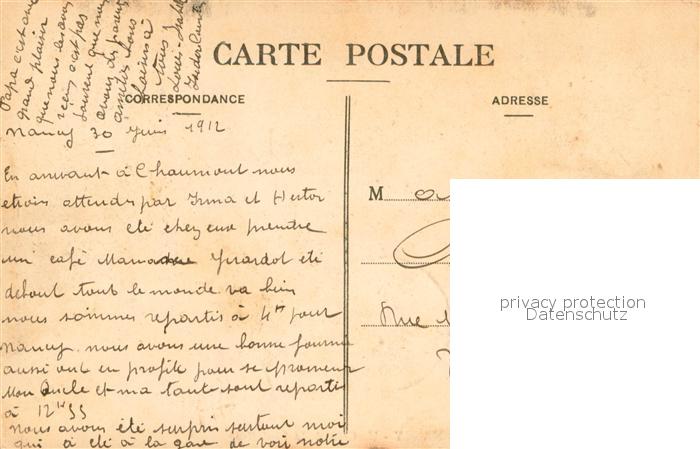 Papa c'est avec
grand plaisir
que nous avons
reçu c'est pas
souvent que nous
avons des parents
amitiés à tous
tous
Louis
CARTE POSTALE
CORRESPONDANCE
ADRESSE
Nancy 30 Juin 1912
En arrivant à Chaumont nous
étions attendu par Irma et Hector
nous avons été chez eux prendre
un café Maman Girardot été
debout tout le monde va bien
nous sommes repartis à 4h pour
Nancy. nous avons une bonne journée
aussi ont en profite pour se promener
Mon Oncle et ma tante sont repartis
à 12h55
nous avons été surpris surtout moi
qui a été à la gare de voir notre
M
Rue
privacy protection
Datenschutz